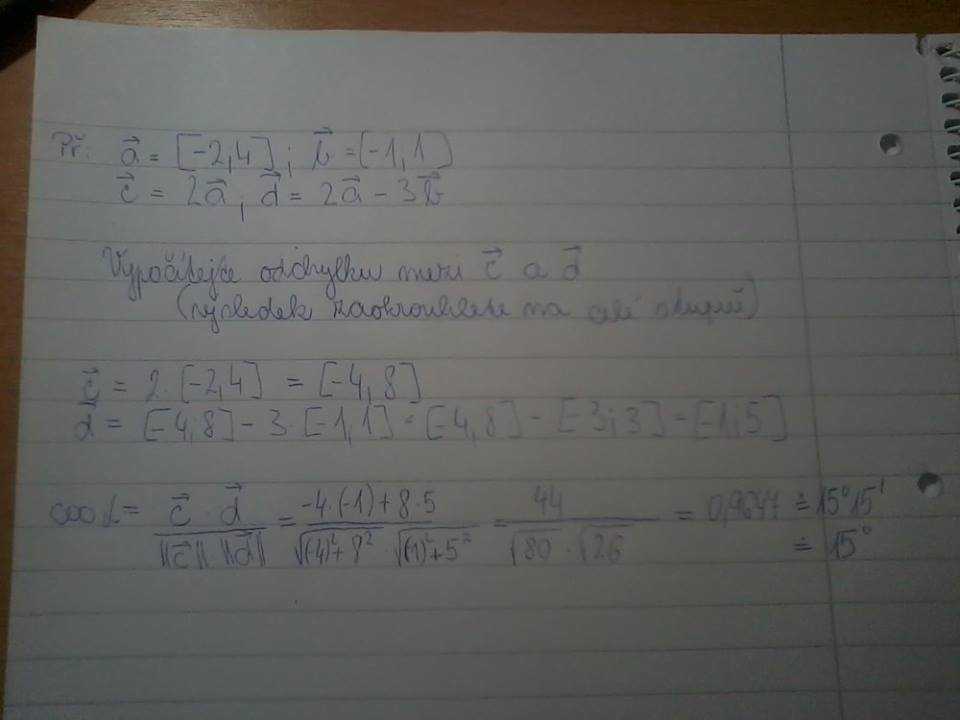 Př: a⃗ = [-2,4] ; b⃗ = [-1,1]
c⃗ = 2a⃗ ; d⃗ = 2a⃗ - 3b⃗
Vypočítejte odchylku mezi c⃗ a d⃗
(výsledek zaokrouhlete na celé stupně)
c⃗ = 2·[-2,4] = [-4,8]
d⃗ = [-4,8] - 3·[-1,1] = [-4,8] - [-3;3] = [-1;5]
cos α = (c⃗ · d⃗)/(||c⃗|| ||d⃗||) = (-4·(-1)+8·5)/(√((-4)²+8²) · √((-1)²+5²)) = 44/(√80 · √26) = 0,9647 ≐ 15°15'
≐ 15°